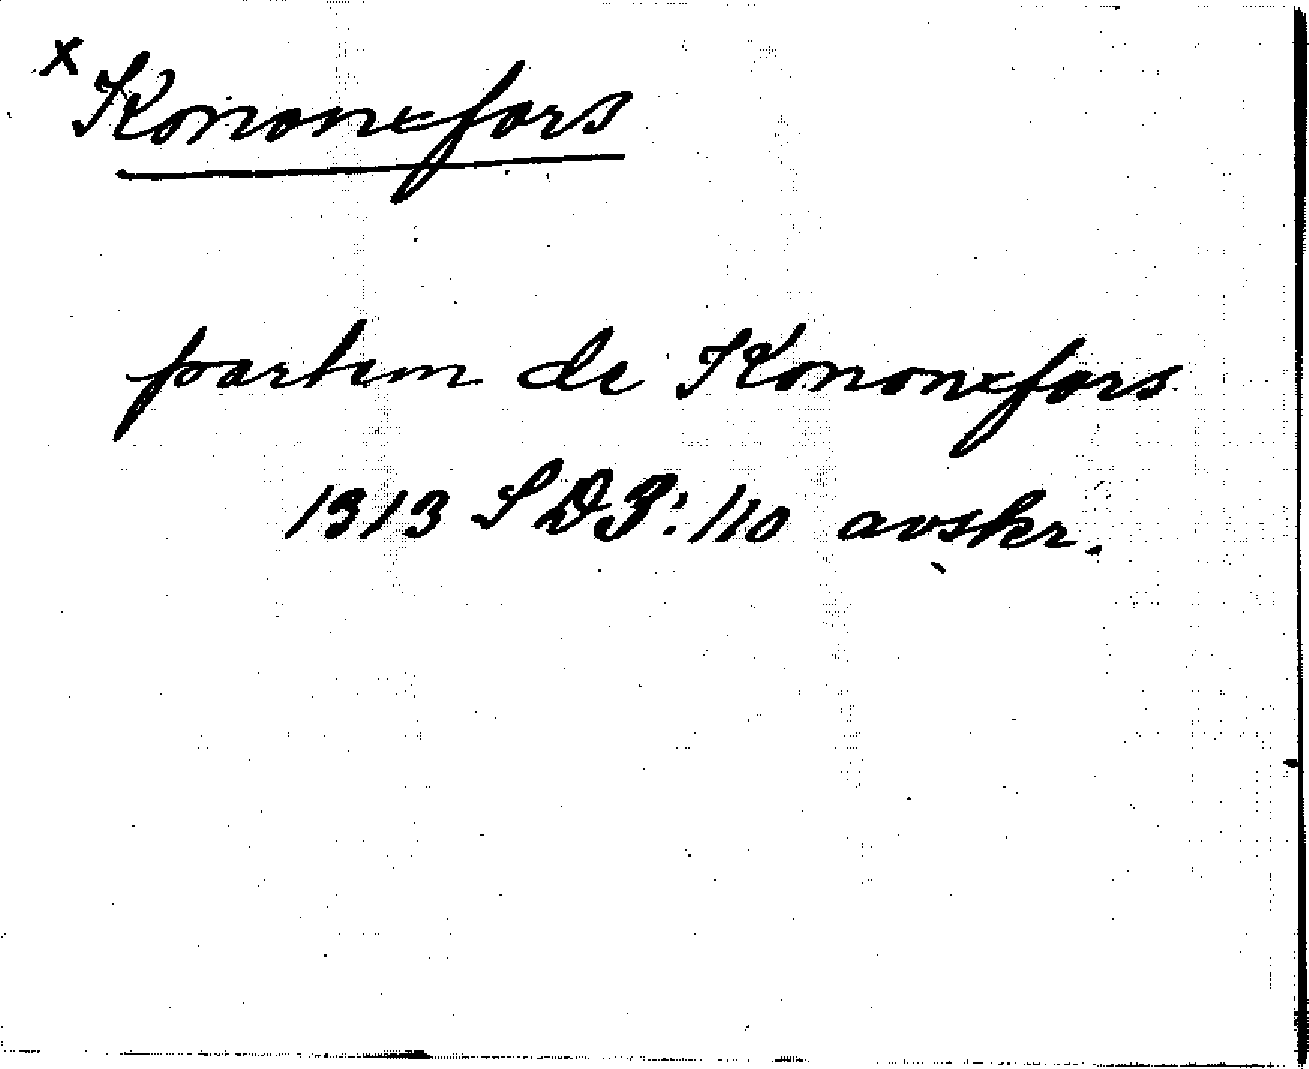 x Kononxfors
partem de Kononxfors
1313 SD3: 110 avskr.